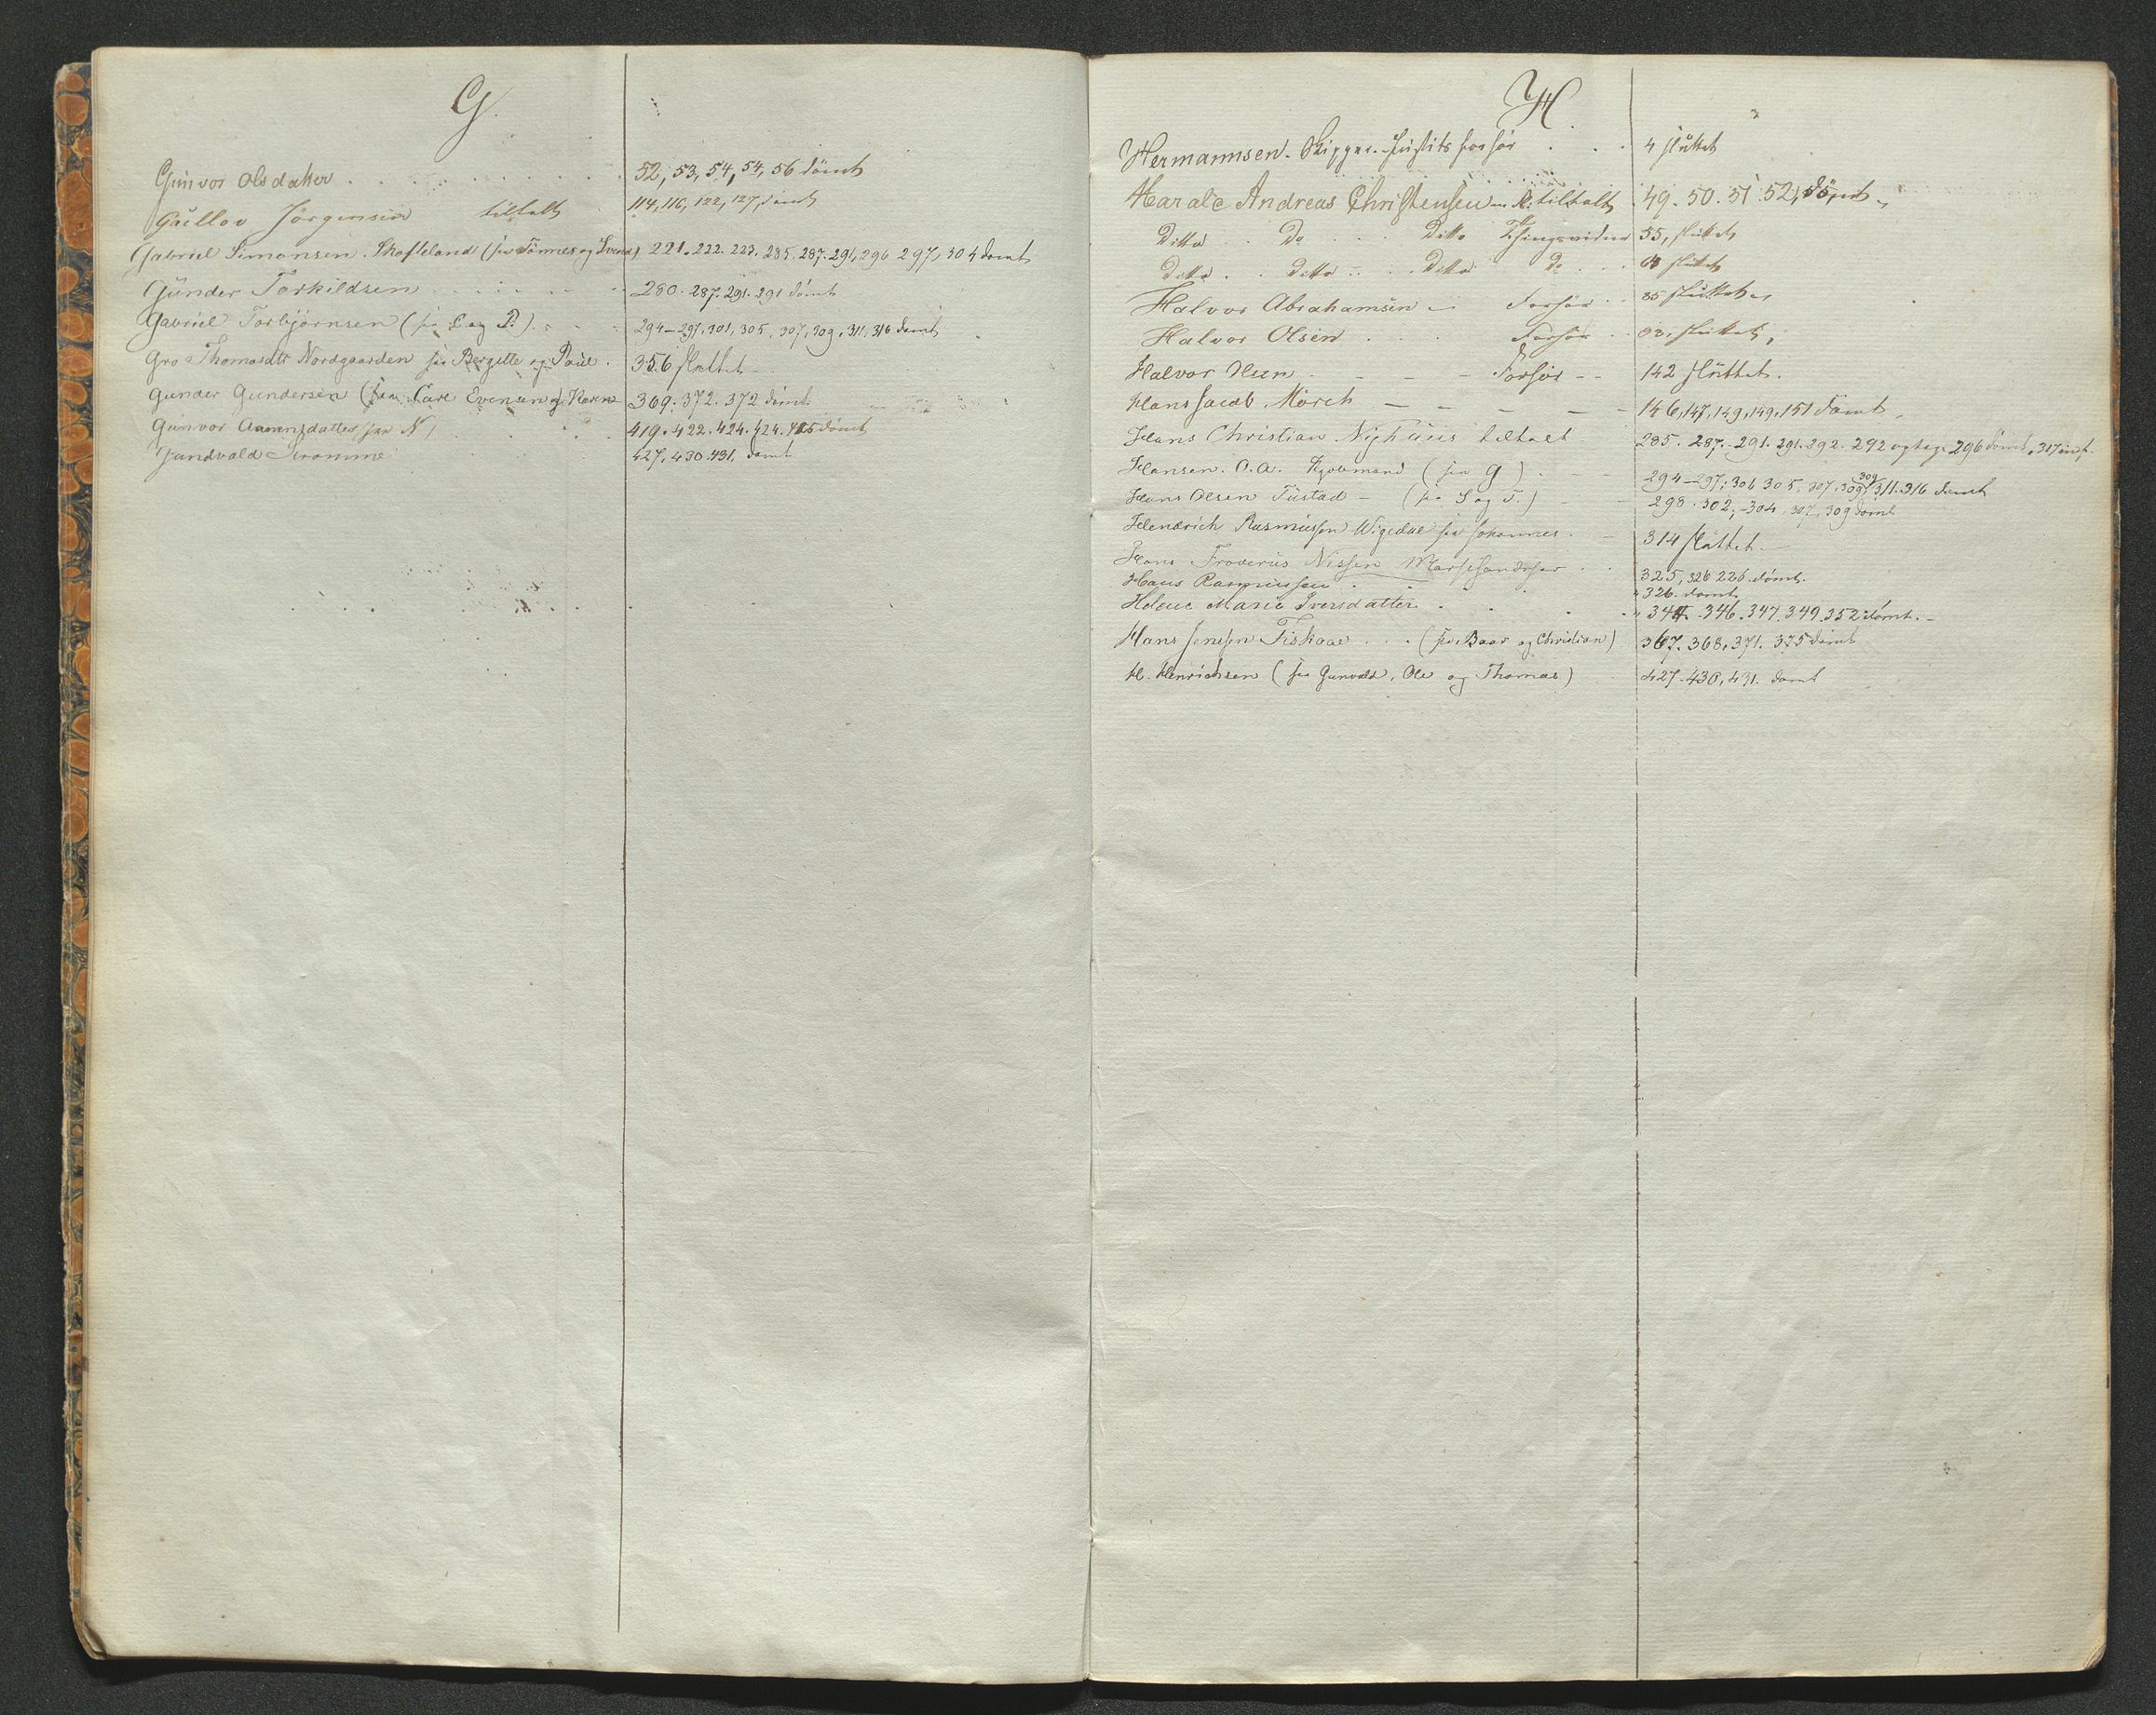 G.
Gunvor Olsdatter . . . . . . . . . 52, 53, 54, 54, 56 dömt
Gullov Jörgensen tiltalt 114, 116, 122, 127, dömt
Gabriel Simonsen Skofteland (se Tönnes og Svend) 221. 222. 223. 285. 287. 291, 296 297, 304 dömt
Gunder Torkildsen . . . . 280. 287. 291. 291 dömt
Gabriel Torbjörnsen (se og P.) 294-297, 301, 305, 307, 309, 311, 316 dömt
Gro Thomasdtr Nordgaarden se Bergitte og Paul. 356 sluttet
Gunder Gundersen (se Carl Evensen og Karen 369. 372. 372 dömt
Gunvor Aanensdatter se N) 419. 422. 424. 424. 425 dömt
Gundvald Tromme 427, 430. 431. dömt
H.
Hermannsen. Skipper. Justits forhör . . . 4 sluttet
Harald Andreas Christensen tiltalt 49. 50. 51. 52, dömt
Ditto . Do . . . Ditto Thingsvidne 55, sluttet
Ditto . . Ditto . . Ditto Do . . . sluttet
Halvor Abrahamsen - Forhör . . 85 sluttet
Halvor Olsen . . . Forhör . . 93, sluttet,
Halvor Olsen - - - - Forhör - - 142 sluttet.
Hans Jacob Mörch - - - - - 146, 147, 149, 149, 151 dömt.
Hans Christian Nyhuus tiltalt 285. 287. 291. 291. 292. 292 optag. 296 dömt, 317
Hansen. O. A. Kjöbmand (se G) . 294-297, 306 305, 307, 309 309, 311. 316 dömt
Hans Olsen Tustad - (se S og T.) 298. 302, -304, 307, 309 dömt
Hendrich Rasmussen Wigedal se Johannes. - 314 sluttet -
Hans Froverus Nissen . . 325, 326 226. dömt.
Hans Rasmussen . . . " 326. dömt
Helene Marie Iversdatter . . . . " 344. 346. 347. 349. 352 dömt. -
Hans Jensen Fiskaae . . . (se Baar og Christian) 367. 368, 371. 375 dömt
H. Henrichsen (se Gunvald, Ole og Thomas) 427. 430, 431. dömt